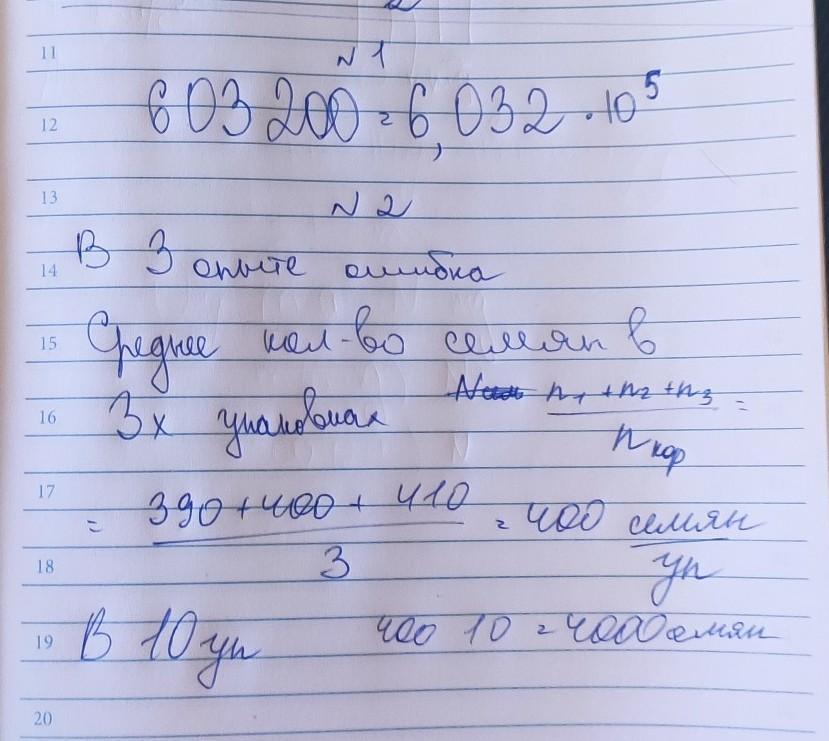 11
N 1
12
603 200 = 6,032 · 10⁵
13
N 2
14
В 3 опыте ошибка
15
Среднее кол-во семян в
16
3х упаковках n₁ + n₂ + n₃ =
n кор
17
= 390 + 400 + 410 = 400 семян
18
3 уп
19
В 10 уп 400 10 = 4000 семян
20